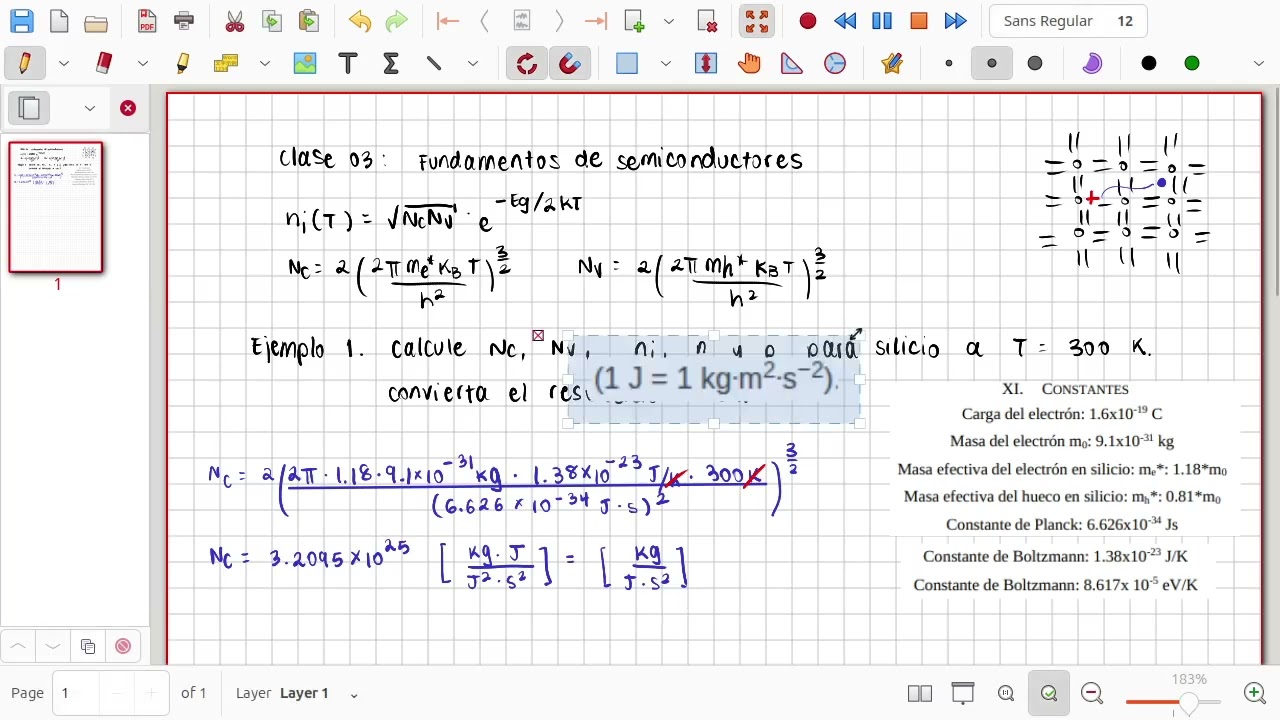 Sans Regular 12
Clase 03: Fundamentos de semiconductores
ni(T) = √NcNv · e^(-Eg/2kT)
Nc = 2(2π me* KB T / h²)^(3/2)    Nv = 2(2π mh* KB T / h²)^(3/2)
1
Ejemplo 1. Calcule Nc, Nv, ni, n y p para silicio a T = 300 K.
(1 J = 1 kg·m²·s⁻²).
convierta el
XI. CONSTANTES
Carga del electrón: 1.6x10⁻¹⁹ C
Masa del electrón m₀: 9.1x10⁻³¹ kg
Masa efectiva del electrón en silicio: mₑ*: 1.18*m₀
Masa efectiva del hueco en silicio: mₕ*: 0.81*m₀
Constante de Planck: 6.626x10⁻³⁴ Js
Constante de Boltzmann: 1.38x10⁻²³ J/K
Constante de Boltzmann: 8.617x 10⁻⁵ eV/K
Nc = 2(2π · 1.18 · 9.1×10⁻³¹ kg · 1.38×10⁻²³ J/K · 300K / (6.626 × 10⁻³⁴ J·s)²)^(3/2)
Nc = 3.2095×10²⁵ [kg · J / J² · s²] = [kg / J·s²]
Page 1 of 1 Layer Layer 1
183%